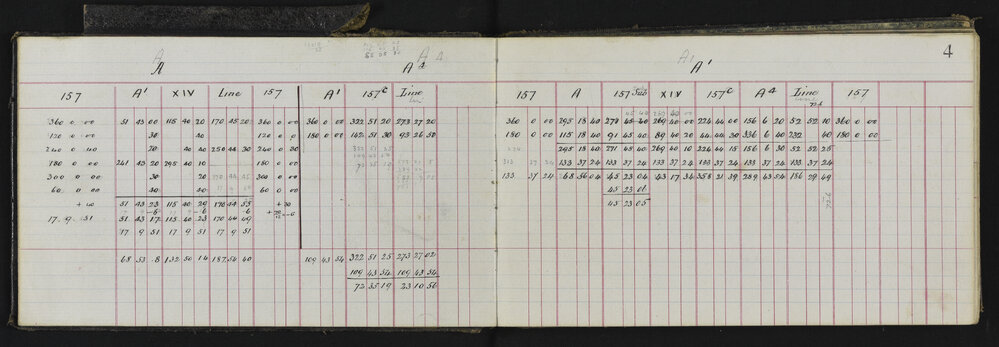 A A
A 4
157 A' XIV Line 157 A' 157c Line
360 0 00 51 43 00 115 40 20 170 45 20 360 0 00 360 0 00 322 51 20 273 27 20
120 0 00 30 40 120 0 0 180 0 00 142 51 30 93 26 50
240 0 40 20 40 40 250 44 30 240 0 30
180 0 00 241 43 20 295 40 10 180 0 00
300 0 00 30 20 300 0 00
60 0 00 40 40 60 0 00
+ 40 51 43 23 115 40 29 170 44 55 + 30
17. 9. 51 51 43 17 115 40 23 170 44 49
17 9 51 17 9 51 17 9 51
68 53 .8 132 50 14 187 54 40 109 43 54 322 51 25 273 27 02
109 43 54 109 43 54
73 35 19 23 10 56
4
A1 A'
157 A 157 Sub XIV 157c A4 Line 157
360 0 00 295 18 40 271 45 40 269 40 00 224 44 00 156 6 20 52 52 10 360 0 00
180 0 00 115 18 40 91 45 40 89 40 20 44 44 30 336 6 40 232 40 180 0 00
295 18 40 271 45 40 269 40 10 224 44 15 156 6 30 52 52 25
313 37 24 133 37 24 133 37 24 133 37 24 133 37 24 133 37 24 133 37 24
133 37 24 68 56 04 45 23 04 43 17 34 358 21 39 289 43 54 186 29 49
45 23 06
45 23 05